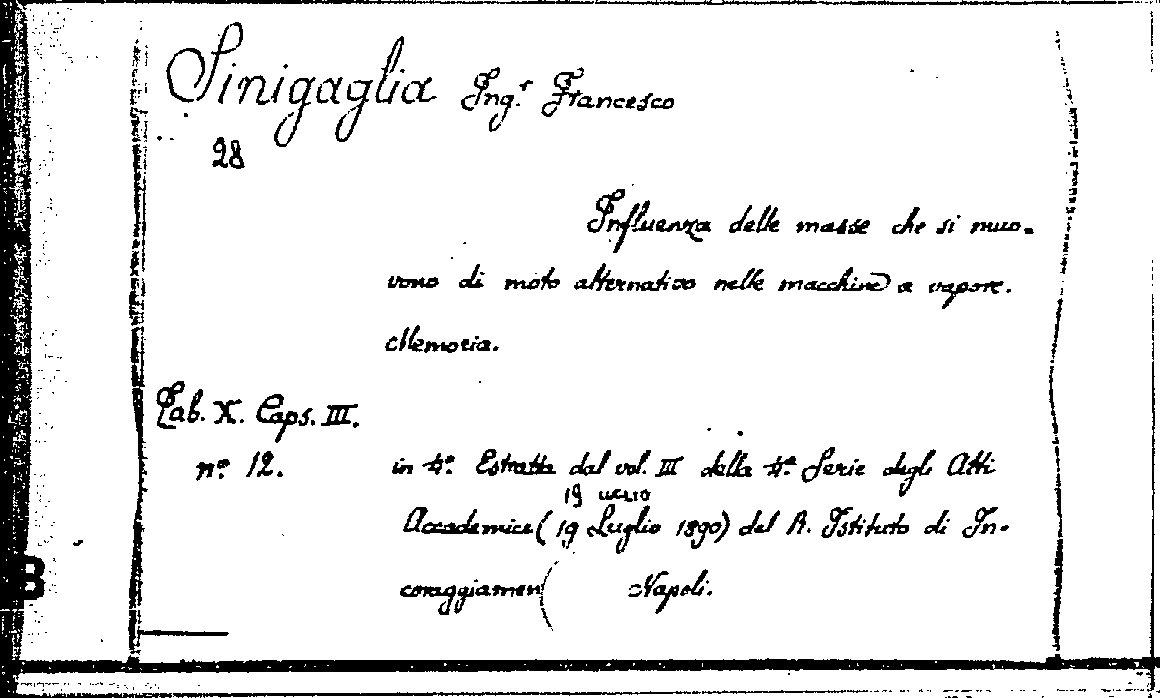 Sinigaglia Ing.r Francesco
28
Influenza delle masse che si muo-
vono di moto alternativo nelle macchine a vapore.
Memoria.
Tab. X. Caps. III.
n.o 12. in 4.o Estratto dal vol. III della 4.a Serie degli Atti
19 LUGLIO
Accademici (19 Luglio 1890) del R. Istituto di In-
coraggiamen( Napoli.
B